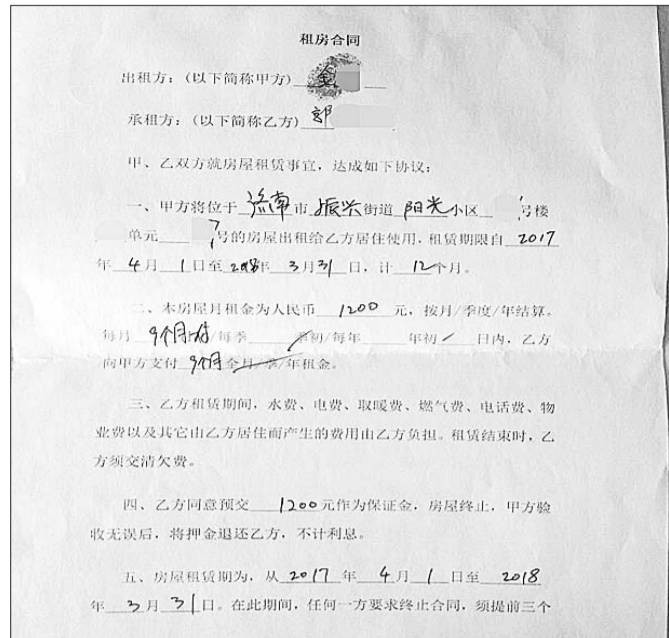 租房合同
出租方：(以下简称甲方)
承租方：(以下简称乙方) 郭
甲、乙双方就房屋租赁事宜，达成如下协议：
一、甲方将位于 济南 市 振兴 街道 阳光 小区 号楼
单元 号的房屋出租给乙方居住使用，租赁期限自 2017
年 4 月 1 日至 2018 年 3 月 31 日，计 12 个月。
二、本房屋月租金为人民币 1200 元，按月/季度/年结算。
每月 9个月付 /每季 季初/每年 年初 日内，乙方
向甲方支付 9个月 全月/季/年租金。
三、乙方租赁期间，水费、电费、取暖费、燃气费、电话费、物
业费以及其它由乙方居住而产生的费用由乙方负担。租赁结束时，乙
方须交清欠费。
四、乙方同意预交 1200 元作为保证金，房屋终止，甲方验
收无误后，将押金退还乙方，不计利息。
五、房屋租赁期为，从 2017 年 4 月 1 日至 2018
年 3 月 31 日。在此期间，任何一方要求终止合同，须提前三个